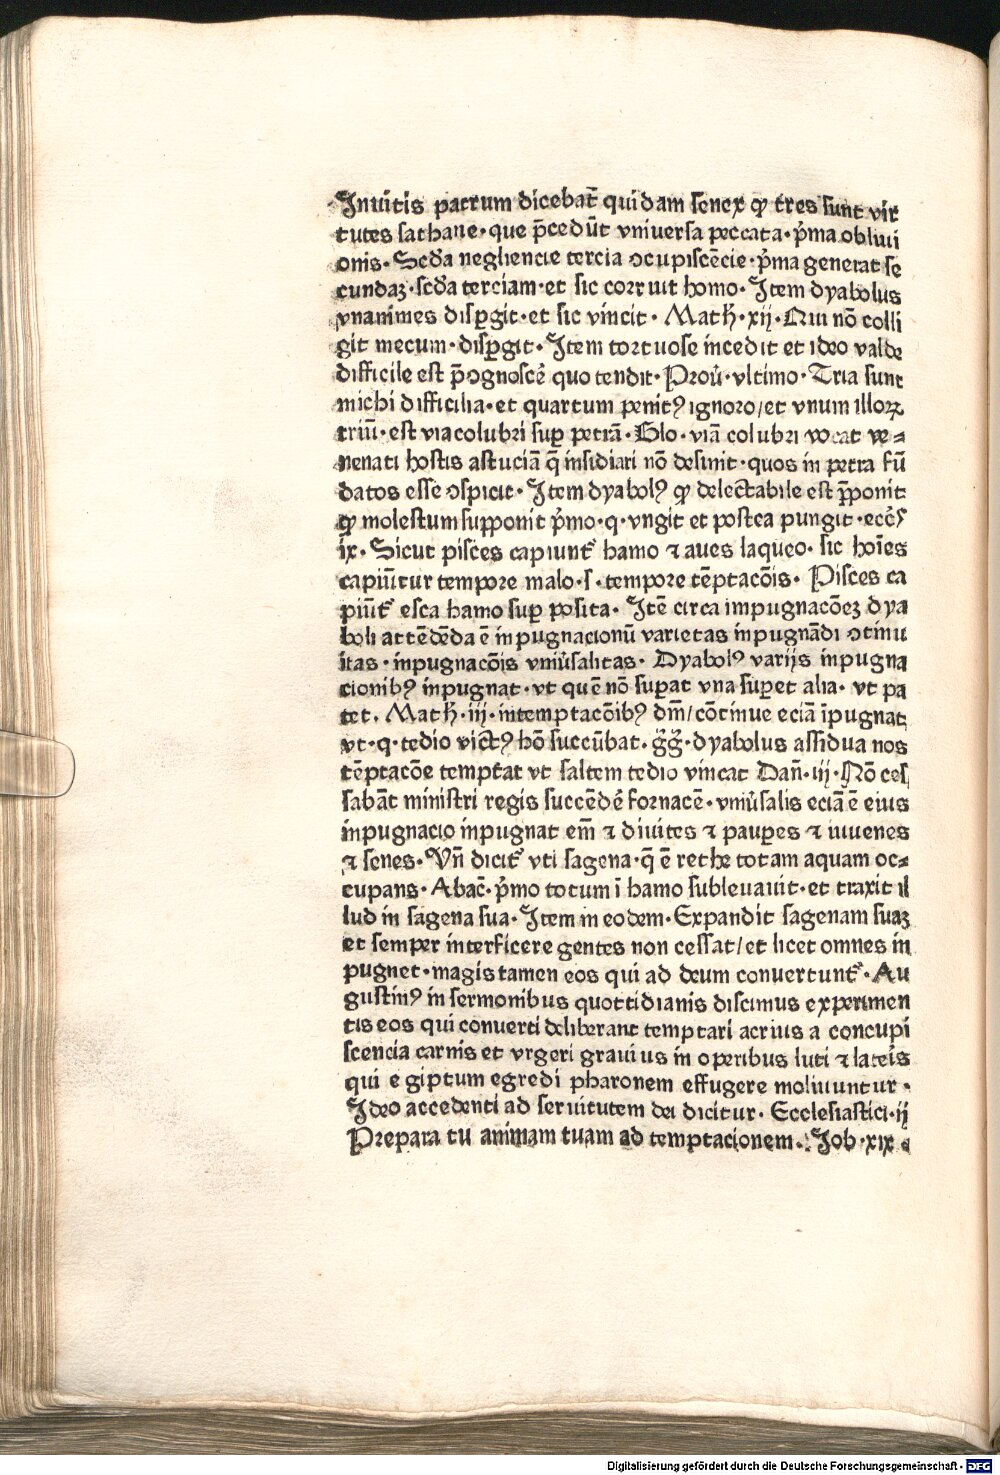 Inuitis patrum dicebat̄ quidam senex ꝙ tres sunt vir
tutes sathane·que p̄cedūt vniuersa peccata·p̄ma obliui
onis·Scd̄a negliencie tercia ɔcupiscēcie·p̄ma generat se
cundaꝫ·scd̄a terciam·et sic corruit homo·Item dyabolus
vnanimes disꝑgit·et sic vincit·Math̄·xij·Qui nō colli
git mecum·disꝑgit·Item tortuose incedit et ideo valde
difficile est p̄ognoscē quo tendit·Proū·vltimo·Tria sunt
michi difficilia·et quartum penitꝰ ignoro/et vnum illoꝝ
triū·est via colubri suꝑ petrā·Glo·viā colubri vocat ve⸗
nenati hostis astuciā q̄ insidiari nō desinit·quos in petra fū
datos esse ɔspicit·Item dyabolꝰ ꝙ delectabile est p̄ponit
ꝙ molestum suꝑponit p̄mo·q·vngit et postea pungit·ecc̄s
ix·Sicut pisces capiunt̄ hamo ⁊ aues laqueo·sic hoīes
capiūtur tempore malo·s·tempore tēptacōis·Pisces ca
piūt̄ esca hamo suꝑ posita·Itē circa impugnacōeꝫ dya
boli attēdēda ē inpugnacionū varietas inpugnādi ɔtinu
itas·inpugnacōis vniūsalitas·Dyabolꝰ varijs inpugna
cionibꝰ inpugnat·vt quē nō suꝑat vna suꝑet alia·vt pa
tet·Math̄·iij·intemptacōibꝰ dm̄/cōtinue eciā īpugnat
vt·q·tedio victꝰ hō succūbat·ḡḡ·dyabolus assidua nos
tēptacōe temptat vt saltem tedio vincat Dan̄·iij·Nō ces
sabāt ministri regis succēdē fornacē·vniūsalis eciā ē eius
inpugnacio inpugnat em̄ ⁊ diuites ⁊ pauꝑes ⁊ iuuenes
⁊ senes·Vn̄ dicit̄ vti sagena·q̄ ē rethe totam aquam oc⸗
cupans·Abac̄·p̄mo totum ī hamo subleuauit·et traxit il
lud in sagena sua·Item in eodem·Expandit sagenam suaꝫ
et semper interficere gentes non cessat/et licet omnes in
pugnet·magis tamen eos qui ad deum conuertunt̄·Au
gustinꝰ in sermonibus quottidianis discimus experimen
tis eos qui conuerti deliberant temptari acrius a concupi
scencia carnis et vrgeri grauius in operibus luti ⁊ lateris
qui egiptum egredi pharonem effugere moliuuntur·
Ideo accedenti ad seruitutem dei dicitur·Ecclesiastici·ij
Prepara tu animam tuam ad temptacionem·Iob·xix·
Digitalisierung gefördert durch die Deutsche Forschungsgemeinschaft · DFG